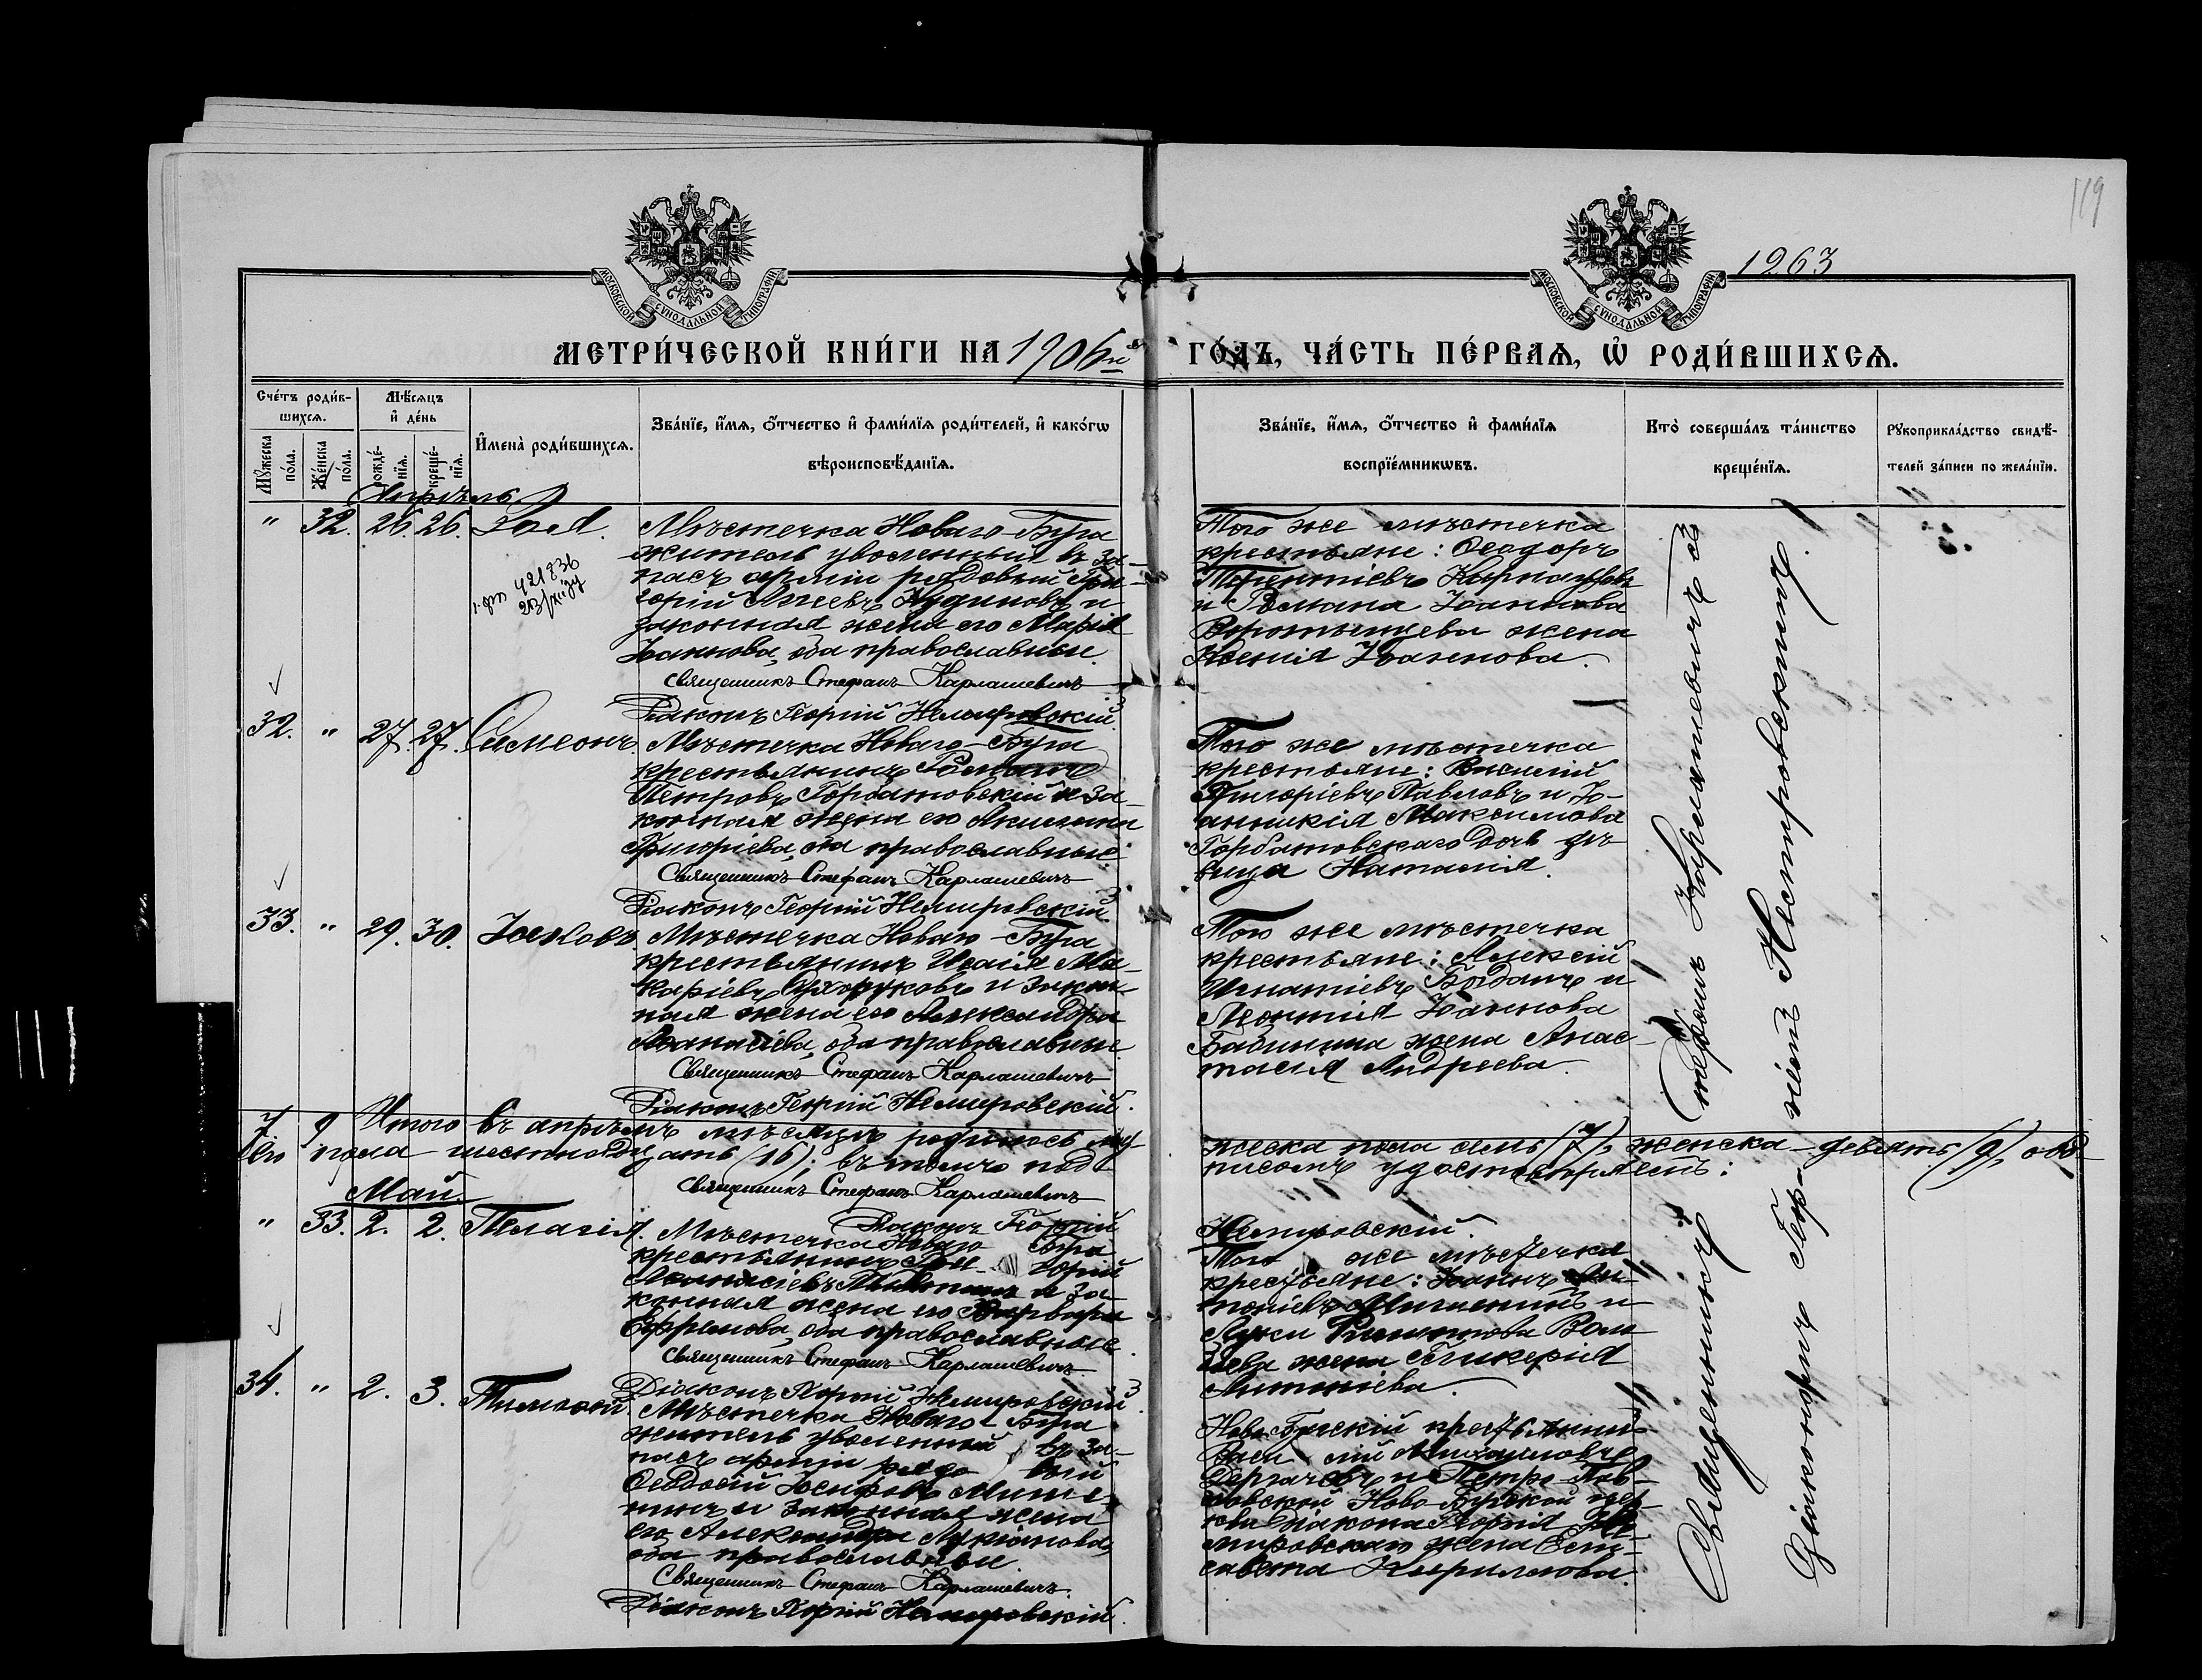 119
1263
МОСКОВСКОЙ СѴНОДАЛЬНОЙ ТИПОГРАФІИ
МОСКОВСКОЙ СѴНОДАЛЬНОЙ ТИПОГРАФІИ
МЕТРИ́ЧЕСКОЙ КНИ́ГИ НА 1906й ГО́ДЪ, ЧА́СТЬ ПЕ́РВАѦ, Ѡ҆ РОДИ́ВШИХСѦ.
Сче́тъ роди́в-
шихсѧ.
Мꙋ́жеска по́ла.
Же́нска по́ла.
Мѣ́сѧцъ
и҆ де́нь
рожде́-нїѧ.
креще́-нїѧ.
И҆мена̀ роди́вшихсѧ.
Зва́нїе, и҆́мѧ, ѻ҆́тчество и҆ фами́лїѧ роди́телей, и҆ како́гѡ
вѣроисповѣ́данїѧ.
Зва́нїе, и҆́мѧ, ѻ҆́тчество и҆ фами́лїѧ
воспрїе́мникѡвъ.
Кто̀ соверша́лъ та́инство
креще́нїѧ.
Рꙋкоприкла́дство свидѣ́-
телей за́писи по жела́нїи.
Апрѣль
" 32. 26. 26. Зоя.
Мѣстечка Новаго-Буга
житель уволенный въ за-
пасъ арміи рядовый Гри-
горій Кудиновъ и
законная жена его Марія
Іоаннова, оба православные.
Священникъ Стефанъ Карлашевичъ
Діаконъ Георгій Немировскій.
Того же мѣстечка
крестьяне: Ѳеодоръ
Терентіевъ
и Романа Іоаннова
жена
Ксенія Іоаннова.
32. " 27. 27. Симеонъ.
Мѣстечка Новаго-Буга
крестьянинъ Романъ
Петровъ Горбатовскій и за-
конная жена его Акилина
Григоріева, оба православные
Священникъ Стефанъ Карлашевичъ
Діаконъ Георгій Немировскій
Того же мѣстечка
крестьяне: Василій
Григоріевъ Павловъ и Іо-
анникія Максимова
Горбатовскаго дочь дѣ-
вица Наталія.
33. " 29. 30. Іаковъ.
Мѣстечка Новаго-Буга
крестьянинъ Исаія Ма-
каріевъ Сухоруковъ и закон-
ная жена его Александра
Аѳанасіева, оба православные
Священникъ Стефанъ Карлашевичъ
Діаконъ Георгій Немировскій.
Того же мѣстечка
крестьяне: Алексій
Игнатіевъ и
Леонтія Іоаннова
Бабинина жена Анас-
тасія Андреева.
7 9 Итого въ апрѣлѣ мѣсяцѣ родилось му-
жеска пола семь (7), женска - девять (9), обо-
его пола - шестнадцать (16); въ томъ под-
писомъ удостовѣряемъ:
Священникъ Стефанъ Карлашевичъ
Діаконъ Георгій Немировскій.
Май.
" 33. 2. 2. Пелагія.
Мѣстечка Новаго Буга
крестьянинъ Гри- горій
Аѳанасіевъ и за-
конная жена его Варвара
Ефремова, оба православные.
Священникъ Стефанъ Карлашевичъ.
Діаконъ Георгій Немировскій.
Того же мѣстечка
крестьяне: Іоаннъ Ан-
тоніевъ и
Луки
жена Гликерія
Антоніева.
34. " 2. 3. Тимоѳей.
Мѣстечка Новаго-Буга
житель уволенный въ за-
пасъ арміи рядо- вый
Ѳеодосій Іосифовъ
и законная жена
его Александра Лукіанова,
оба православные.
Священникъ Стефанъ Карлашевичъ.
Діаконъ Георгій Немировскій.
Ново-Бугскій крестьянинъ
Васи- лій Михаиловъ
Дергачевъ и Петро-Пав-
ловской Ново-Бугской цер-
кви діакона Георгія Не-
мировскаго жена Ели-
савета Кирилова.
Священникъ Стефанъ Карлашевичъ съ
Діакономъ Георгіемъ